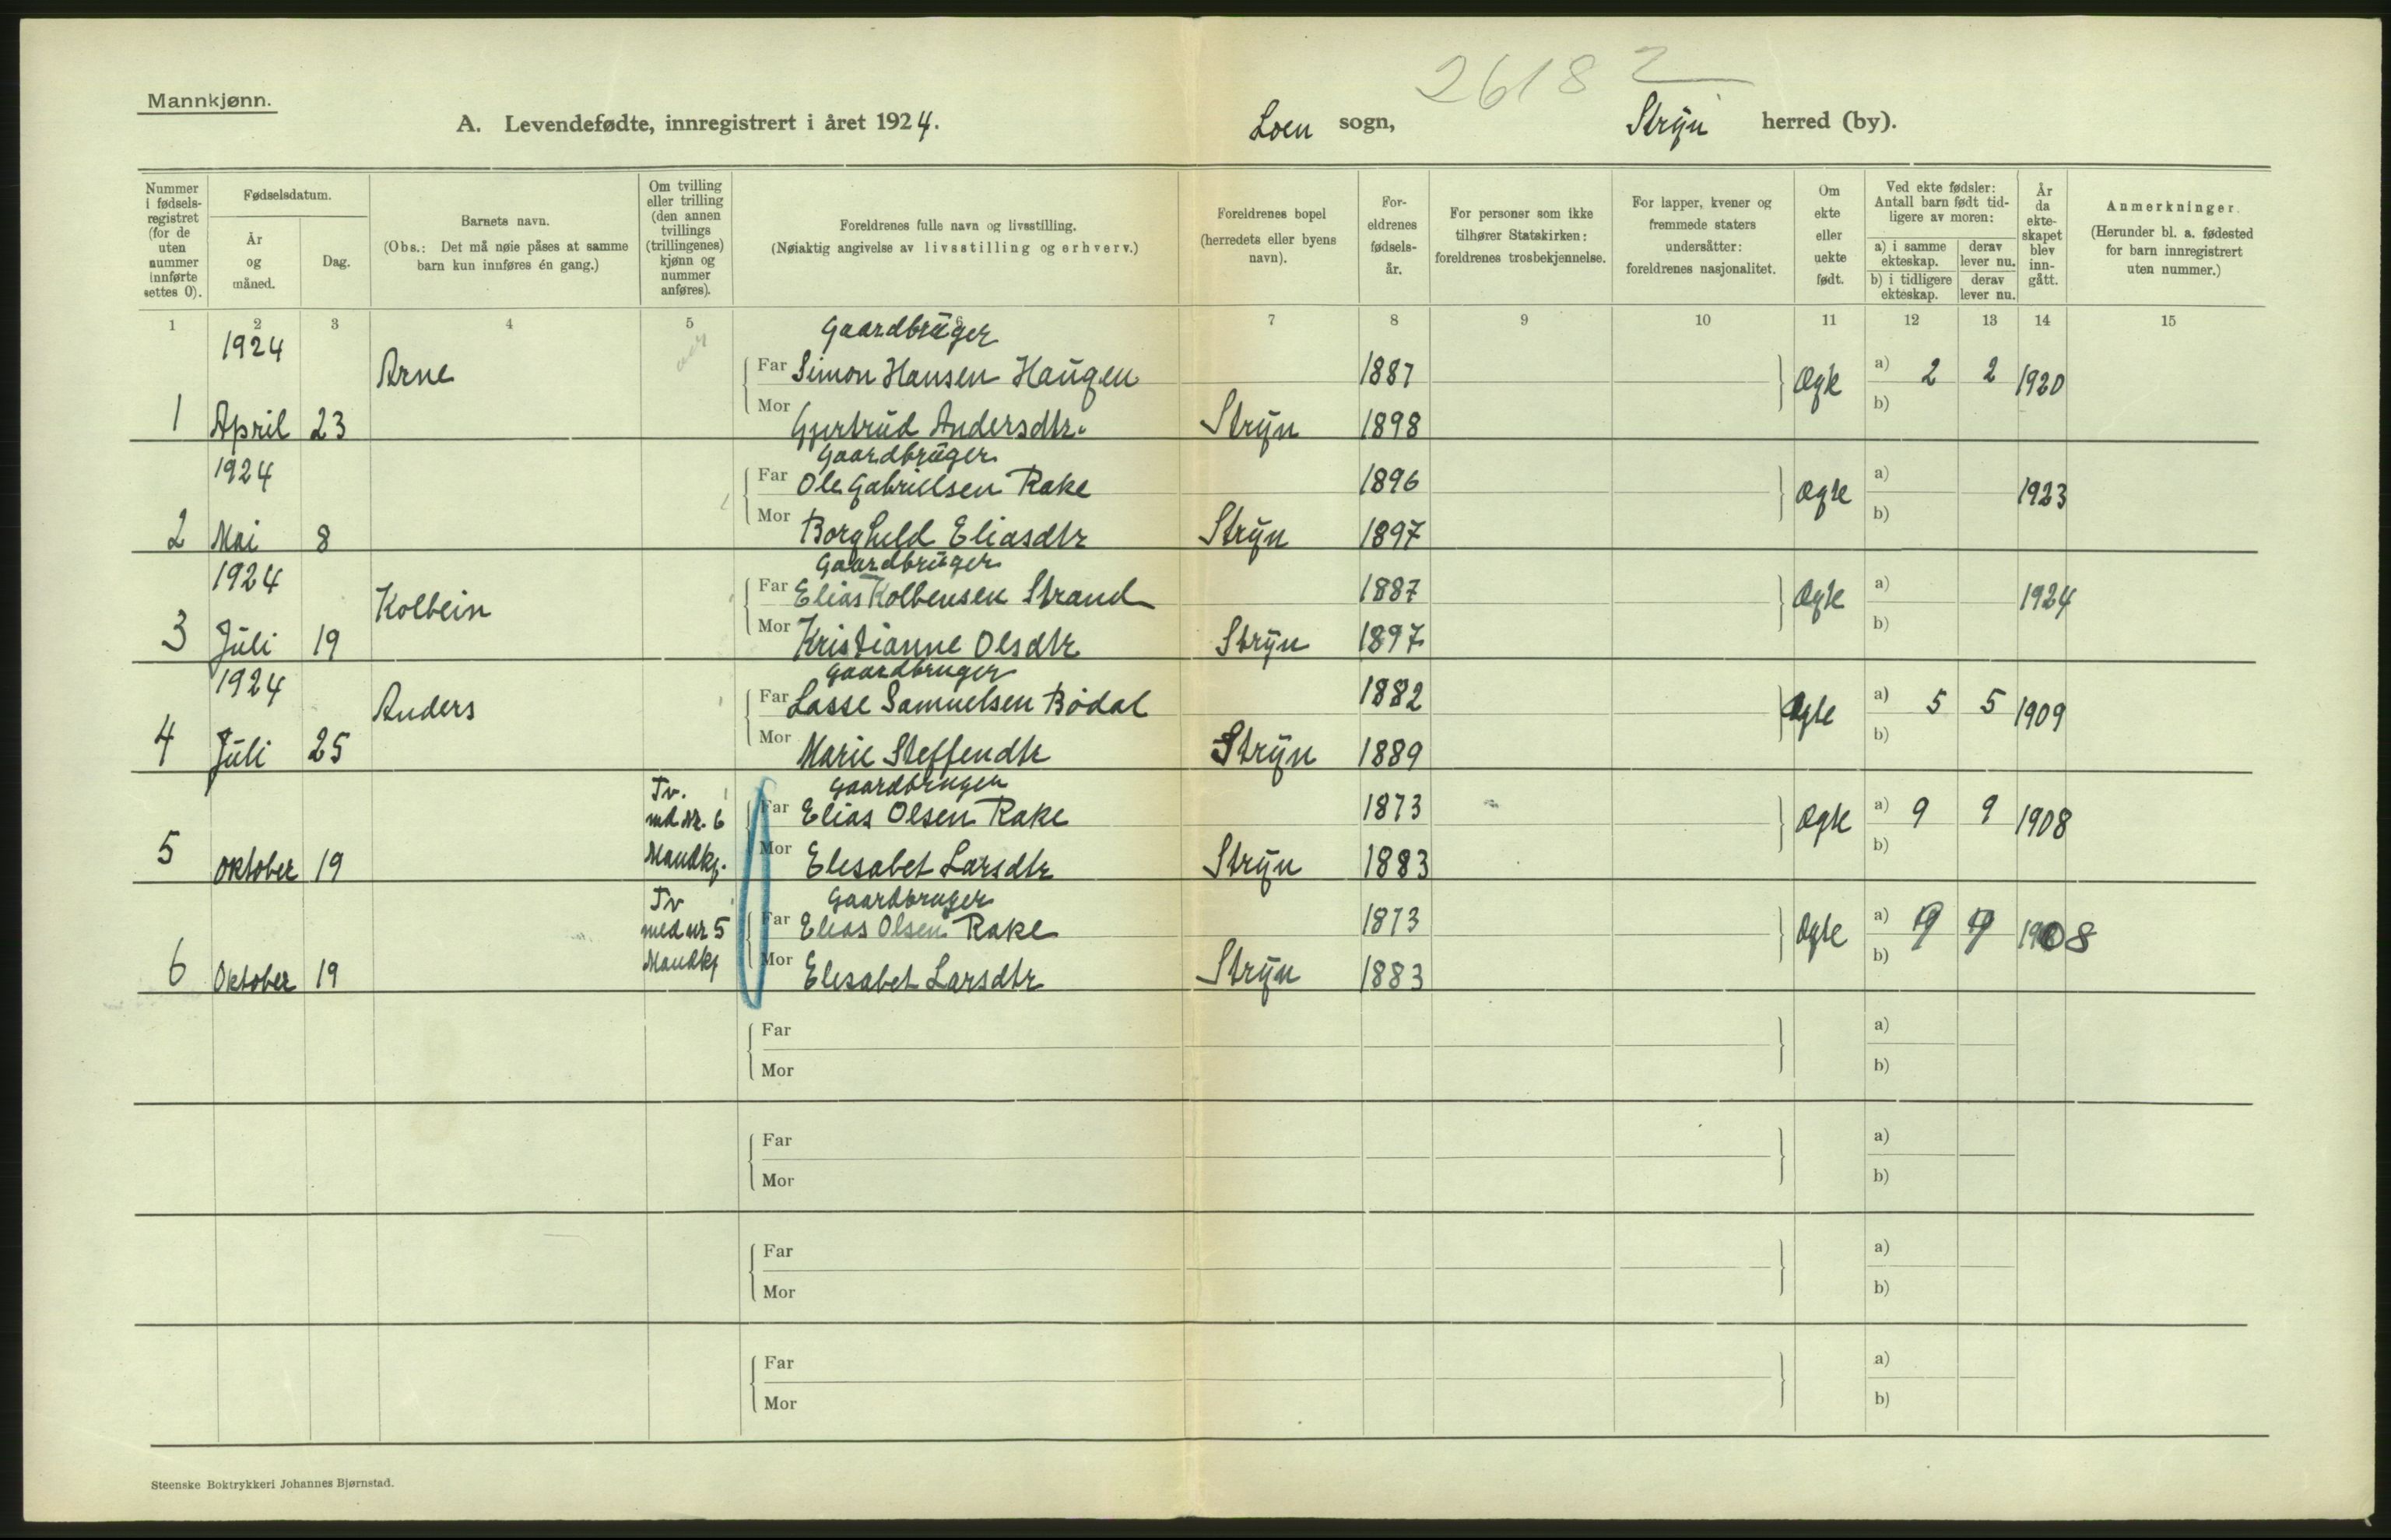 2618 2
Mannkjønn.
A. Levendefødte, innregistrert i året 1924. Loen sogn, Stryn herred (by).
Nummer i fødsels-registret (for de uten nummer innførte settes 0).
Fødselsdatum.
År og måned.
Dag.
Barnets navn.
(Obs.: Det må nøie påses at samme barn kun innføres én gang.)
Om tvilling eller trilling (den annen tvillings (trillingenes) kjønn og nummer anføres).
Foreldrenes fulle navn og livsstilling.
(Nøiaktig angivelse av livsstilling og erhverv.)
Foreldrenes bopel (herredets eller byens navn).
For-eldrenes fødsels-år.
For personer som ikke tilhører Statskirken: foreldrenes trosbekjennelse.
For lapper, kvener og fremmede staters undersåtter: foreldrenes nasjonalitet.
Om ekte eller uekte født.
Ved ekte fødsler: Antall barn født tid-ligere av moren:
a) i samme ekteskap. derav lever nu.
b) i tidligere ekteskap. derav lever nu.
År da ekte-skapet blev inn-gått.
Anmerkninger.
(Herunder bl. a. fødested for barn innregistrert uten nummer.)
1 2 3 4 5 6 7 8 9 10 11 12 13 14 15
1924 Gaardbrüger
Arne Far Simon Hansen Haugen 1887 Ægte a) 2 2 1920
1 April 23 Mor Gjertrüd Andersdtr. Stryn 1898 b)
1924 Gaardbrüger
Far Ole Gabrielsen Rake 1896 Ægte a) 1923
2 Mai 8 Mor Borghild Eliasdtr Stryn 1897 b)
1924 Gaardbrüger
Kolbein Far Elias Kolbensen Strand 1887 Ægte a) 1924
3 Jüli 19 Mor Kristianne Olsdtr Stryn 1897 b)
1924 Gaardbruger
Anders Far Lasse Samuelsen Bødal 1882 Ægte a) 5 5 1909
4 Jüli 25 Mor Marie Steffendtr Stryn 1889 b)
Tv. Gaardbruger
md Nr. 6 Far Elias Olsen Rake 1873 Ægte a) 9 9 1908
5 Oktober 19 Mandkj. Mor Elisabet Larsdtr Stryn 1883 b)
Tv Gaardbruger
med nr 5 Far Elias Olsen Rake 1873 Ægte a) 9 9 1908
6 Oktober 19 Mandkj Mor Elisabet Larsdtr Stryn 1883 b)
Far a)
Mor b)
Far a)
Mor b)
Far a)
Mor b)
Far a)
Mor b)
Steenske Boktrykkeri Johannes Bjørnstad.